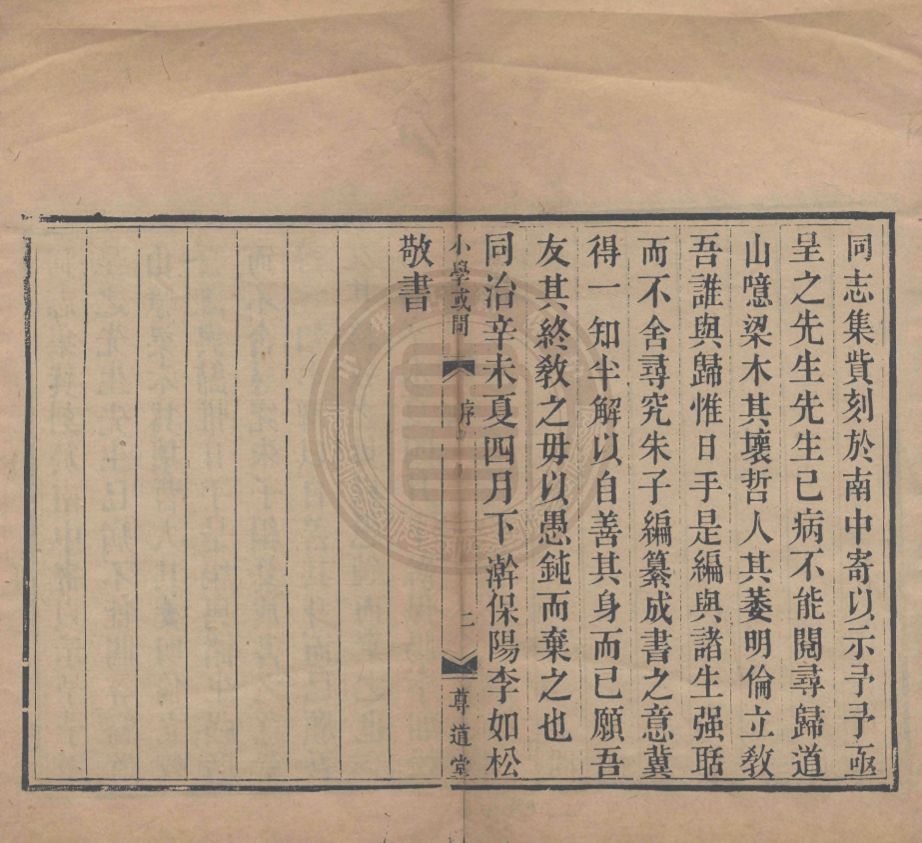 同志集貲刻於南中寄以示予予亟
呈之先生先生已病不能閱尋歸道
山噫梁木其壞哲人其萎明倫立敎
吾誰與歸惟日手是編與諸生强聒
而不舍尋究朱子編纂成書之意冀
得一知半解以自善其身而已願吾
友其終敎之毋以愚鈍而棄之也
同治辛未夏四月下澣保陽李如松
小學或問 序 二 尊道堂
敬書